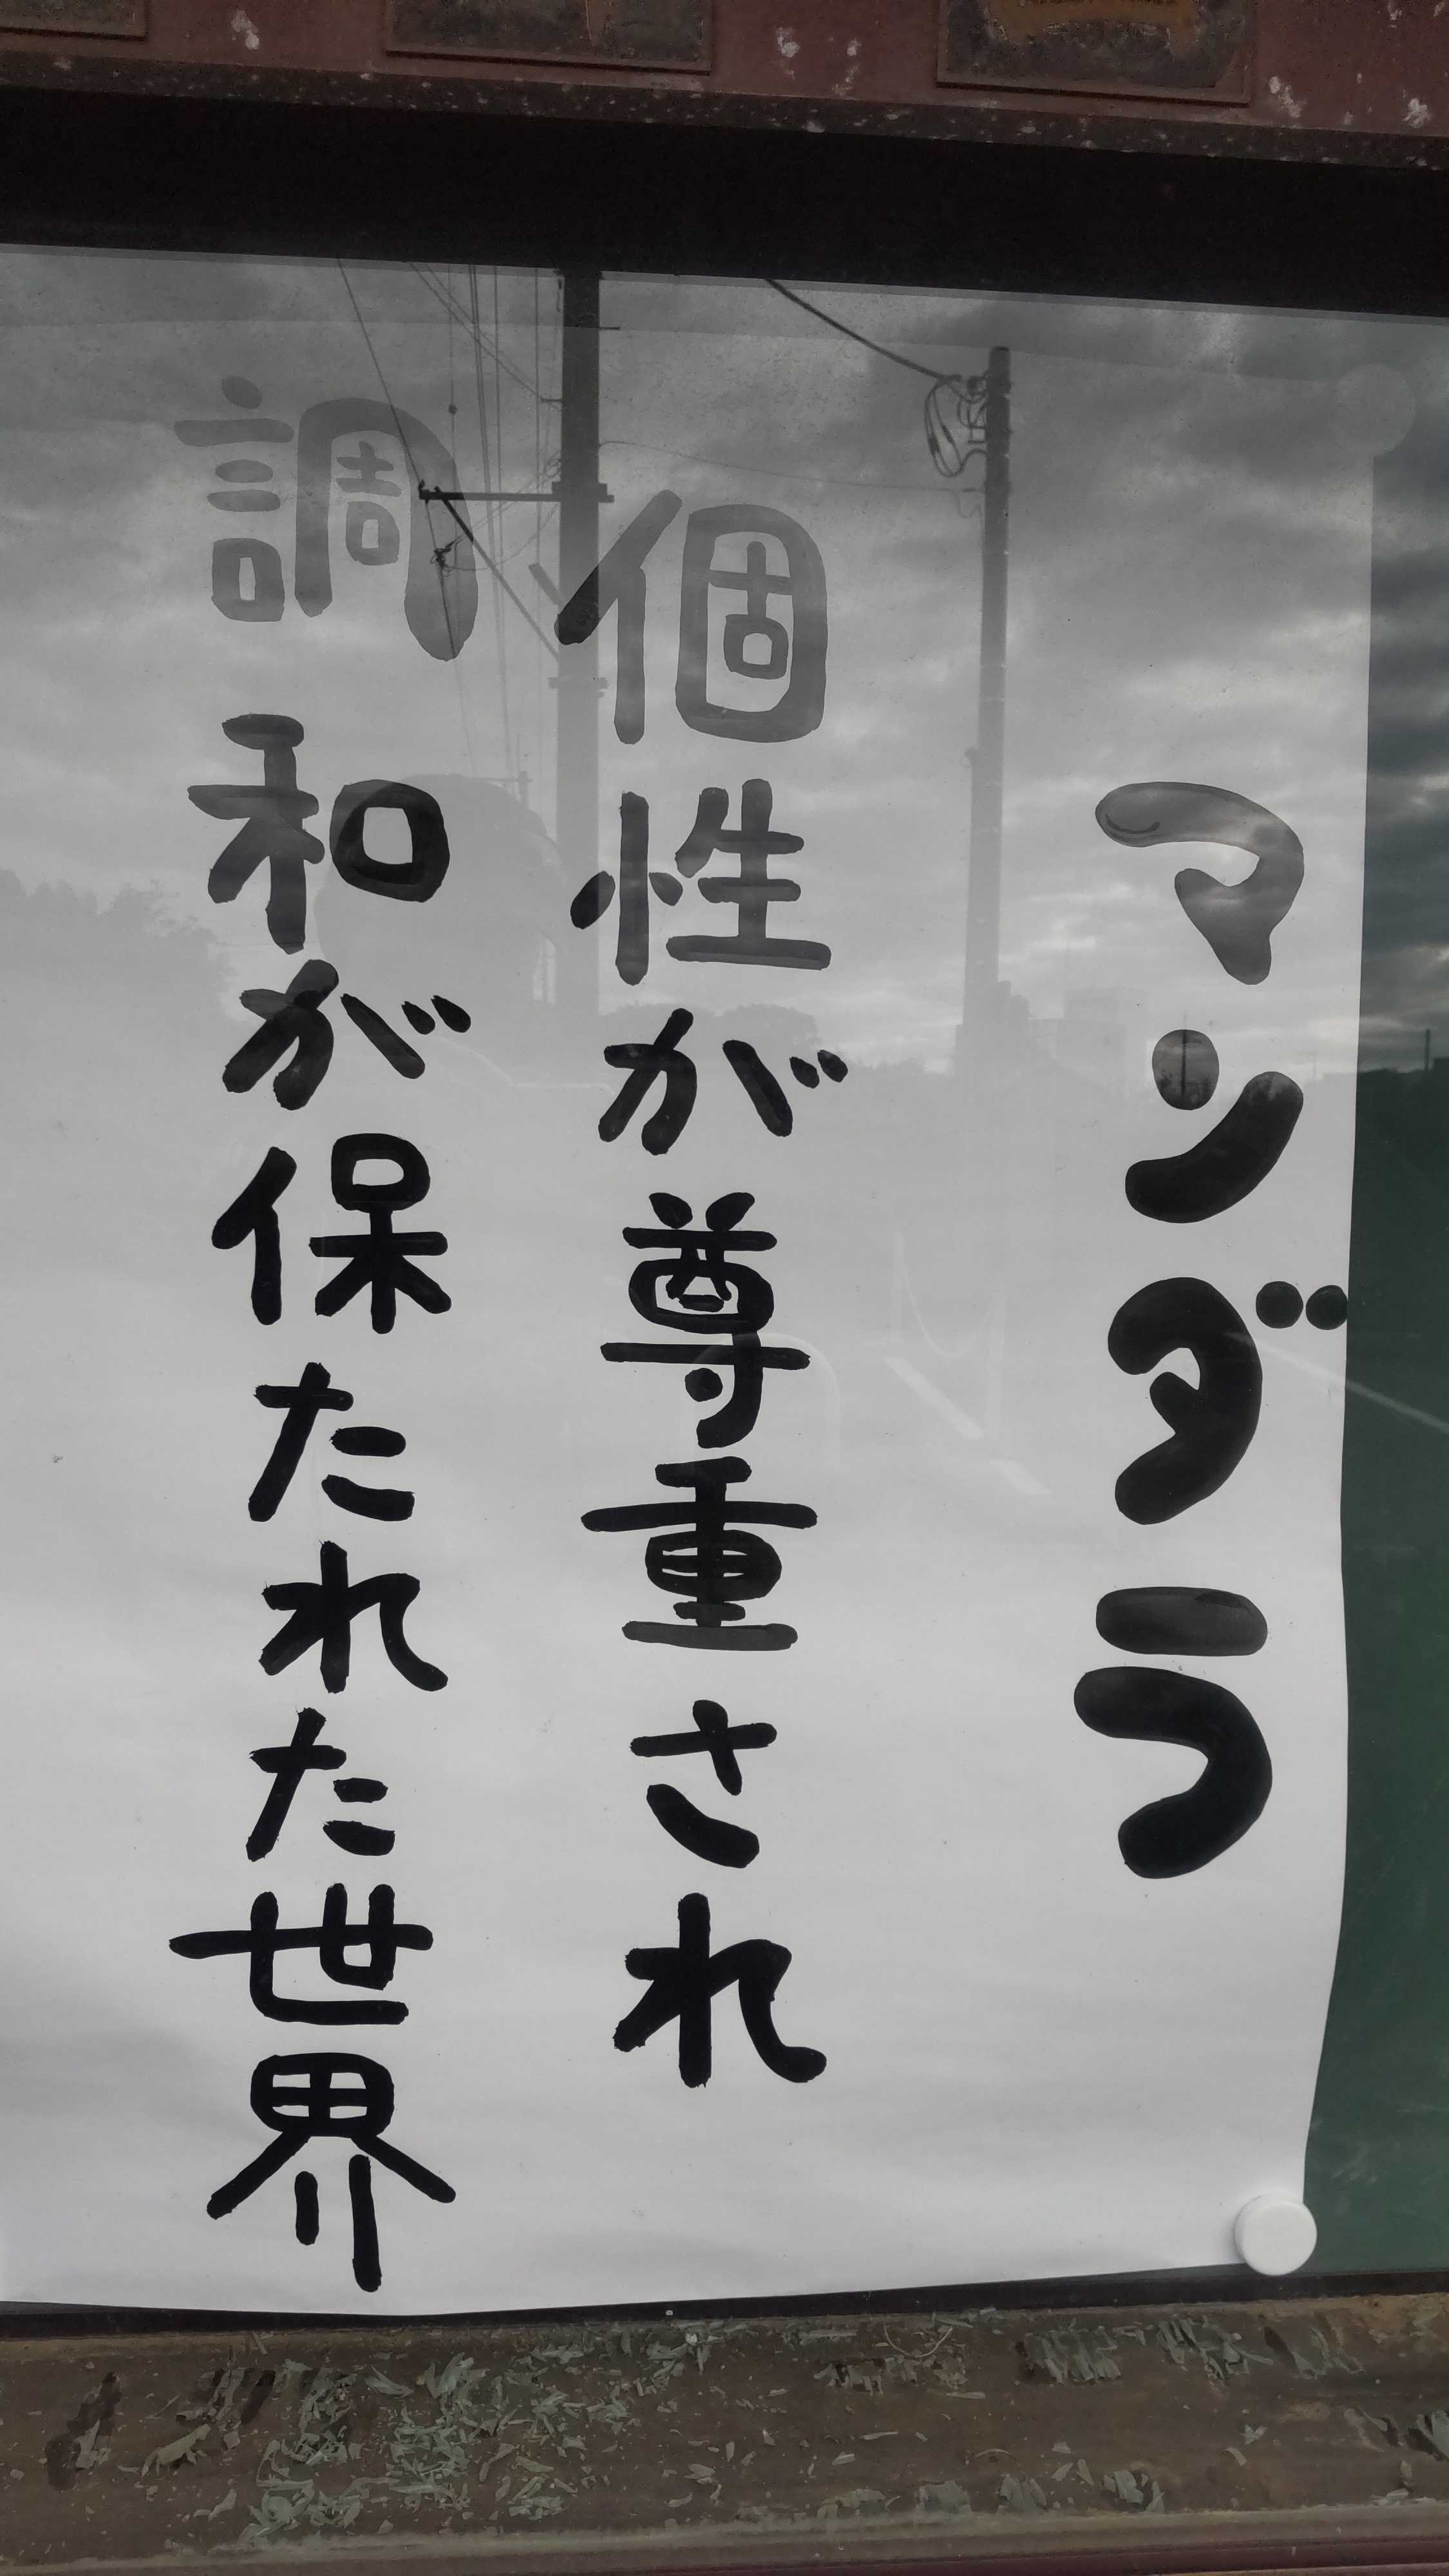 マンダラ
個性が尊重され
調和が保たれた世界